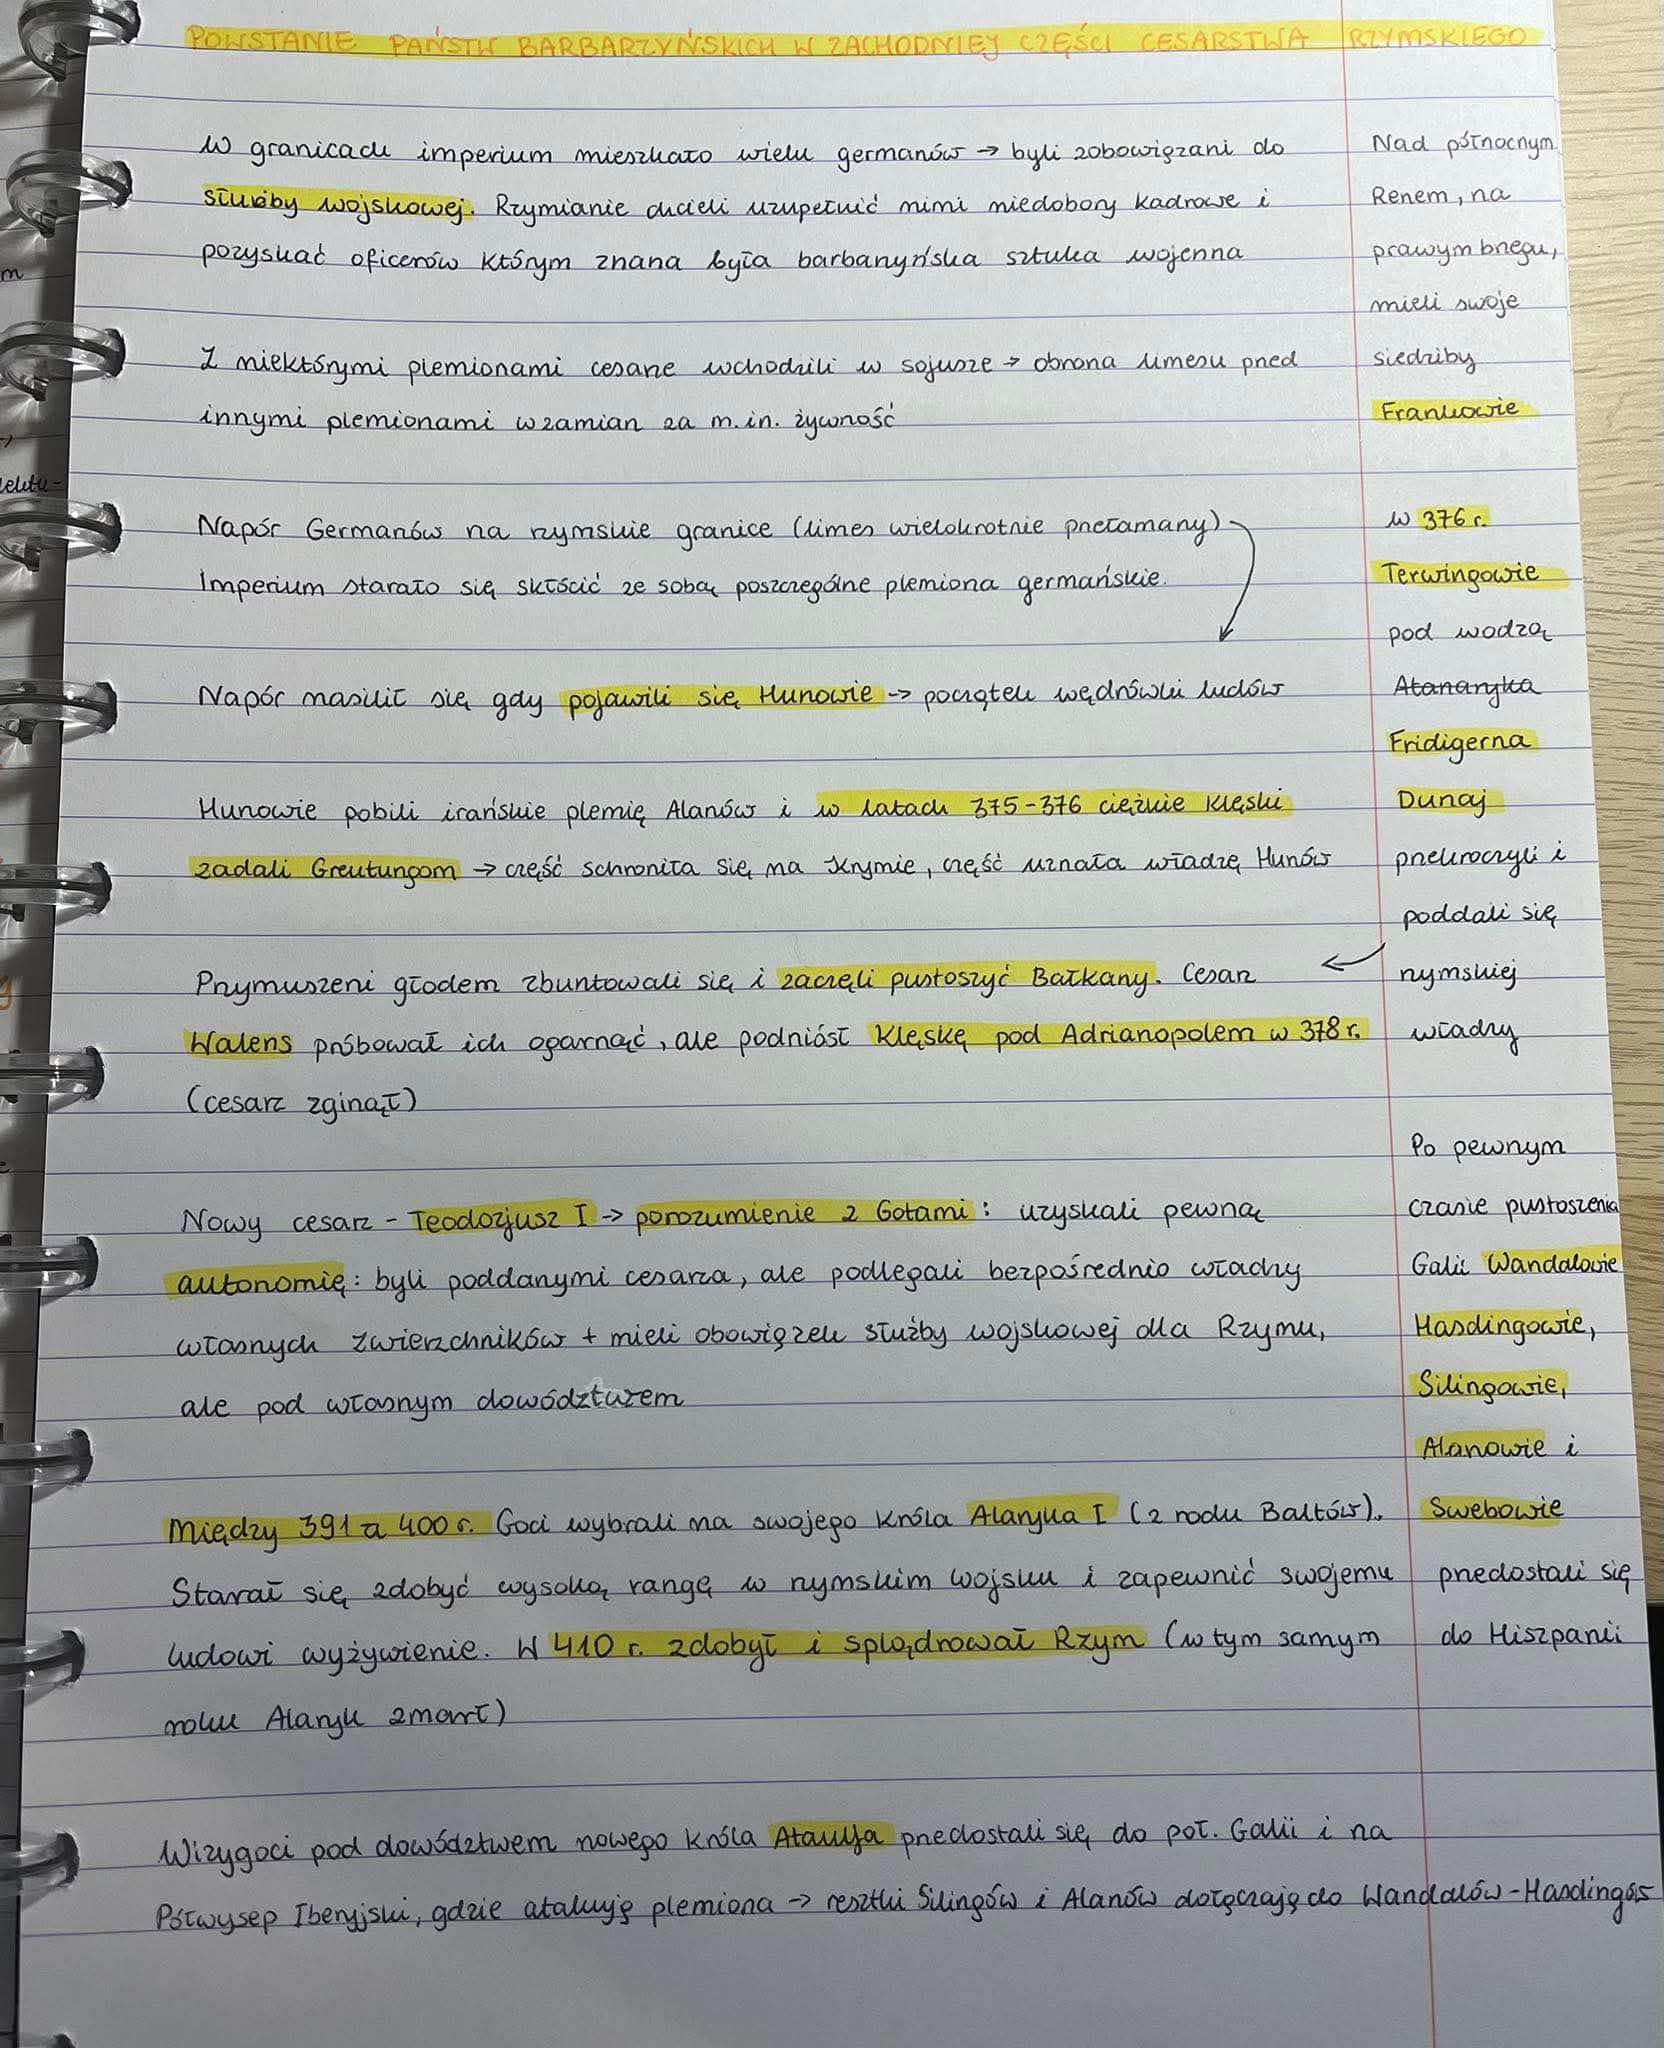 POWSTANIE PAŃSTW BARBARZYŃSKICH W ZACHODNIEJ CZĘŚCI CESARSTWA RZYMSKIEGO
W granicach imperium mieszkało wielu germanów → byli zobowiązani do
służby wojskowej. Rzymianie chcieli uzupełnić nimi niedobory kadrowe i
pozyskać oficerów którym znana była barbarzyńska sztuka wojenna
Z niektórymi plemionami cesarze wchodzili w sojusze → obrona limesu przed
innymi plemionami w zamian za m.in. żywność
Napór Germanów na rzymskie granice (limes wielokrotnie przełamany)
Imperium starało się skłócić ze sobą poszczególne plemiona germańskie.
Napór nasilił się gdy pojawili się Hunowie → początek wędrówki ludów
Hunowie pobili irańskie plemię Alanów i w latach 375-376 ciężkie klęski
zadali Greutungom → część schroniła się na Krymie, część uznała władzę Hunów
Przymuszeni głodem zbuntowali się i zaczęli pustoszyć Bałkany. Cesarz
Walens próbował ich ogarnąć, ale podniósł klęskę pod Adrianopolem w 378 r.
(cesarz zginął)
Nowy cesarz - Teodozjusz I → porozumienie z Gotami: uzyskali pewną
autonomię: byli poddanymi cesarza, ale podlegali bezpośrednio władzy
własnych zwierzchników + mieli obowiązek służby wojskowej dla Rzymu,
ale pod własnym dowództwem
Między 391 a 400 r. Goci wybrali na swojego króla Alaryka I (z rodu Baltów).
Starał się zdobyć wysoką rangę w rzymskim wojsku i zapewnić swojemu
ludowi wyżywienie. W 410 r. zdobył i splądrował Rzym (w tym samym
roku Alaryk zmarł)
Wizygoci pod dowództwem nowego króla Ataulfa przedostali się do poł. Galii i na
Półwysep Iberyjski, gdzie atakują plemiona → resztki Silingów i Alanów dołączają do Wandalów-Hasdingów
Nad północnym
Renem, na
prawym brzegu,
mieli swoje
siedziby
Frankowie
w 376 r.
Terwingowie
pod wodzą
Atanaryka
Fridigerna
Dunaj
przekroczyli i
poddali się
rzymskiej
władzy
Po pewnym
czasie pustoszenia
Galii Wandalowie
Hasdingowie,
Silingowie,
Alanowie i
Swebowie
przedostali się
do Hiszpanii